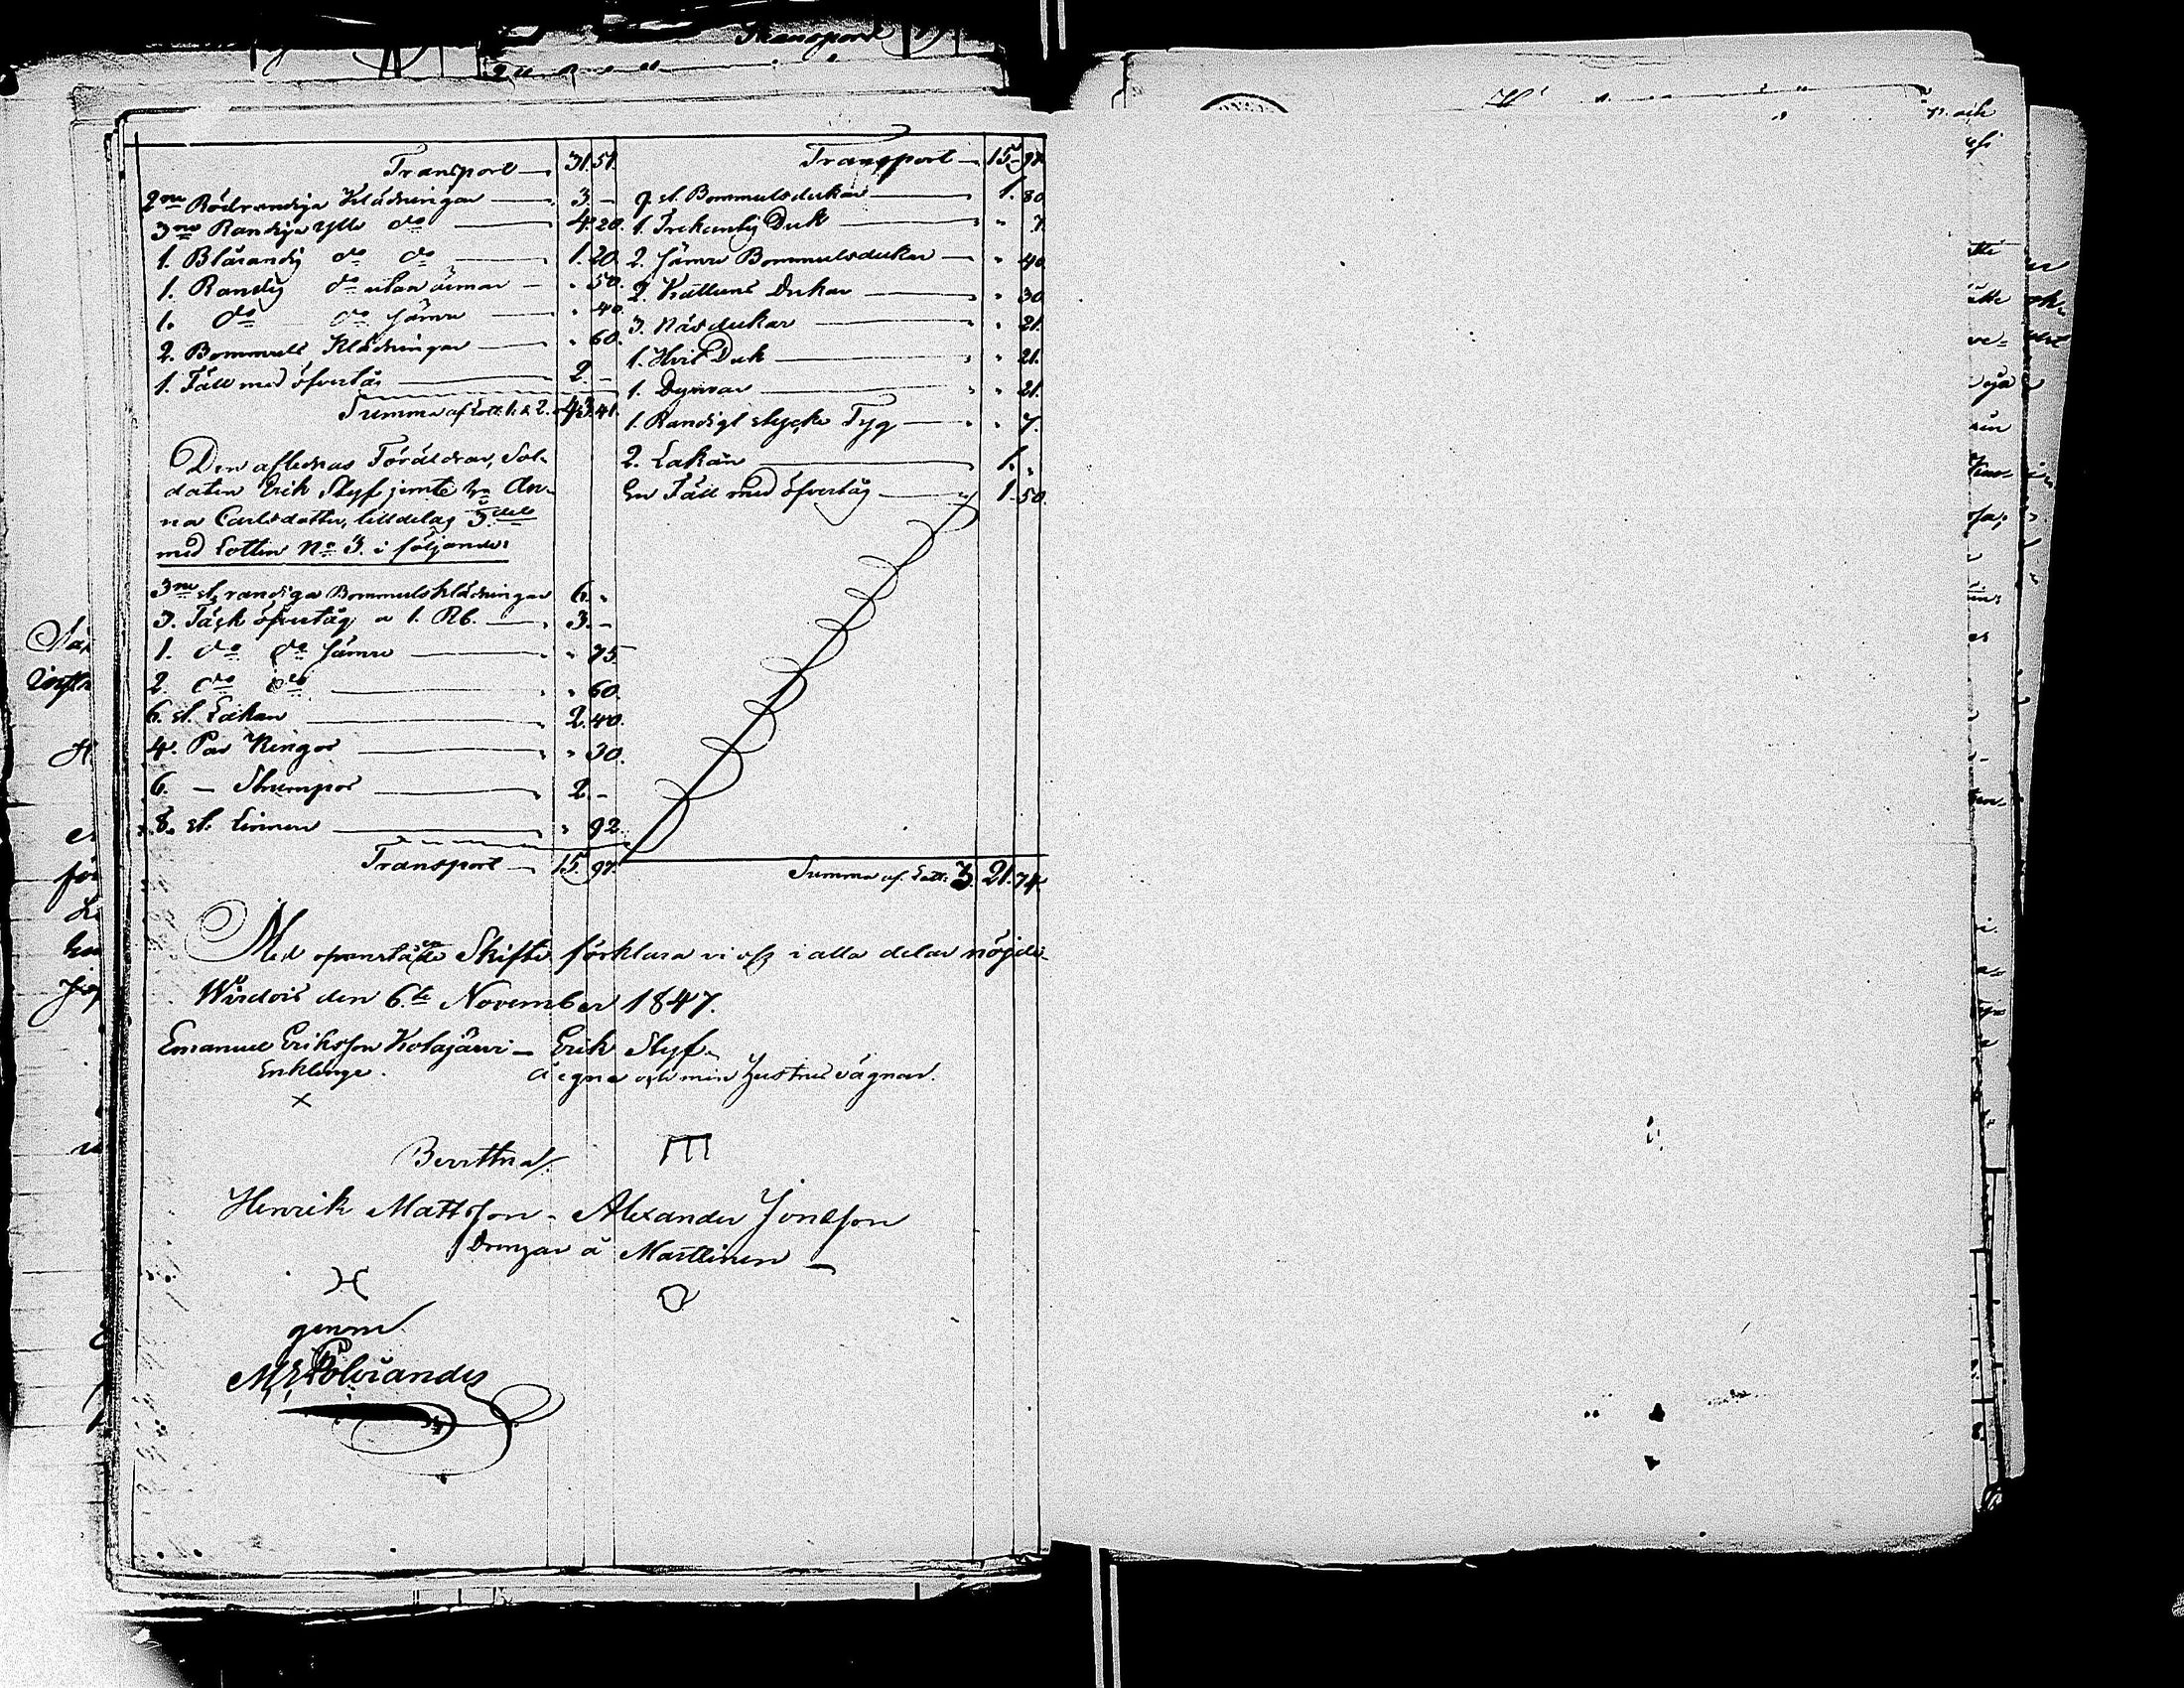 Transport 31. 51.
2ne Rödrandiga Klädningar 3. -
3ne Randiga ylle do 4. 20.
1. Blårandig do do 1. 20.
1. Randig do utan ärmar " 50.
1. do do sämre " 40.
2. Bommuls Klädningar " 60.
1. Fäll med öfvertåg 2. -
Summa af Lott. 1. & 2. 43. 41.
Den aflednas Föräldrar, Sol-
daten Erik Styf jemte hu An-
na Carlsdotter, tilldelas 5.dels
med Lotten No 3. i följande:
3ne st. randiga Bommulsklädningar 6. "
3. Täck öfvertåg a 1. Rb. 3. -
1. do do sämre " 75.
2. do do " 60.
6. st. Lakan 2. 40.
4. Par Kengor " 30.
6. - Strumpor 2. -
8. st. Linnen " 92.
Transport 15. 97.
Transport 15. 97.
9. st. Bommulsdukar 1. 80
1. Trekantig Duk " 7.
2. sämre Bommulsdukar " 40.
2. Kattuns Dukar " 30
3. Näsdukar " 21.
1. Hvit Duk " 21.
1. Dynvar " 21.
1. Randigt stycke Tyg " 7.
2. Lakan 1. "
En Fäll med öfvertåg 1. 50.
Summa af Lott: 3. 21. 74.
Med ofvanstående Skifte förklara vi oss i alla delar nöjde.
Wirdois den 6.te November 1847.
Emanuel Eriksson Kolajärvi - Erik Styf.
Enklinge.
å egna och min hustrus vägnar.
Bevittna/
Henrik Mattsson - Alexander Jonesson
Drengar å Marttinen
genom